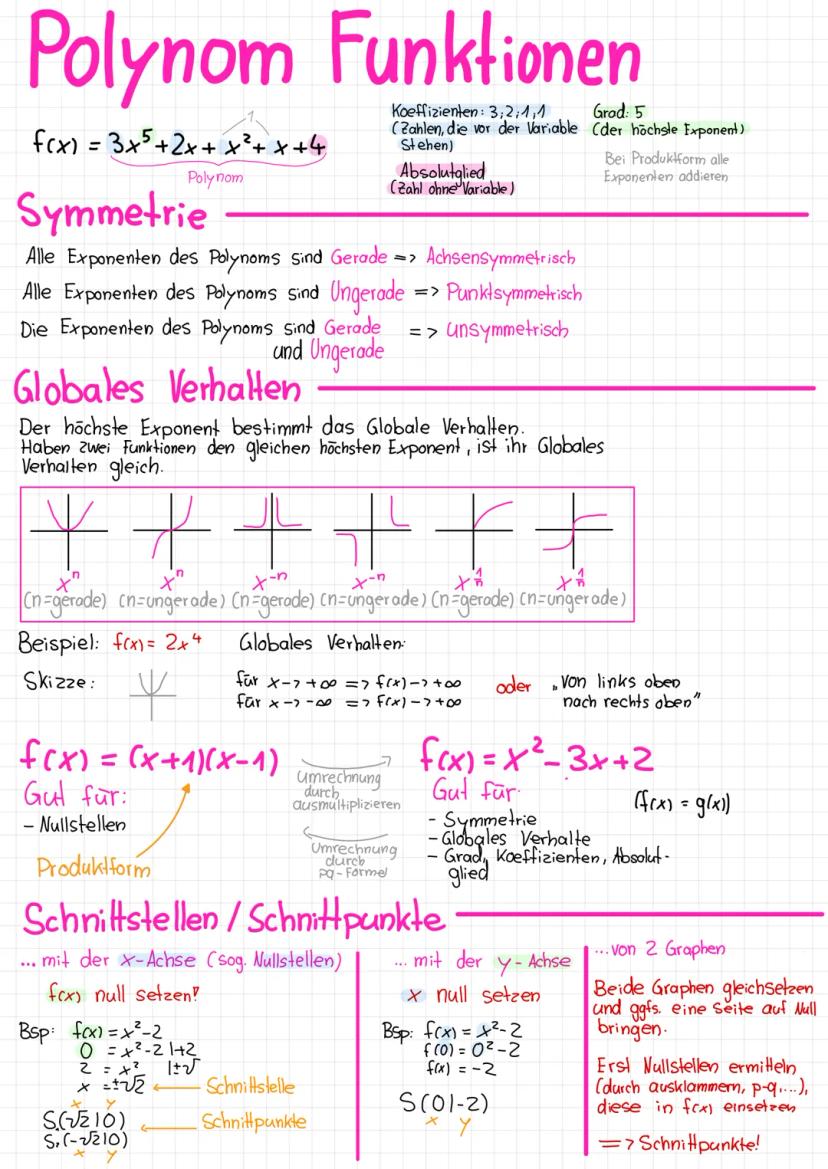 Polynom Funktionen
f(x) = 3x⁵ + 2x + x² + x + 4
1
Polynom
Koeffizienten: 3;2;1,1
(Zahlen, die vor der Variable
stehen)
Absolutglied
(Zahl ohne Variable)
Grad: 5
(der höchste Exponent)
Bei Produktform alle
Exponenten addieren
Symmetrie
Alle Exponenten des Polynoms sind Gerade => Achsensymmetrisch
Alle Exponenten des Polynoms sind Ungerade => Punktsymmetrisch
Die Exponenten des Polynoms sind Gerade => unsymmetrisch
und Ungerade
Globales Verhalten
Der höchste Exponent bestimmt das Globale Verhalten.
Haben zwei Funktionen den gleichen höchsten Exponent, ist ihr Globales
Verhalten gleich.
xⁿ xⁿ x⁻ⁿ x⁻ⁿ x^1/n x^1/n
(n=gerade) (n=ungerade) (n=gerade) (n=ungerade) (n=gerade) (n=ungerade)
Beispiel: f(x) = 2x⁴ Globales Verhalten:
Skizze:
für x -> +∞ => f(x) -> +∞
für x -> -∞ => f(x) -> +∞
oder
„von links oben
nach rechts oben"
f(x) = (x+1)(x-1)
Gut für:
- Nullstellen
Produktform
Umrechnung
durch
ausmultiplizieren
Umrechnung
durch
pq-Formel
f(x) = x² - 3x + 2
Gut für:
(f(x) = g(x))
- Symmetrie
- Globales Verhalte
- Grad, Koeffizienten, Absolut-
glied
Schnittstellen / Schnittpunkte
... mit der x-Achse (sog. Nullstellen)
f(x) null setzen!
Bsp: f(x) = x² - 2
0 = x² - 2 | +2
2 = x² | ±√
x = ±√2 Schnittstelle
x y
S.(√2|0) Schnittpunkte
S.(-√2|0)
x y
... mit der y-Achse
x null setzen
Bsp: f(x) = x² - 2
f(0) = 0² - 2
f(x) = -2
S(0|-2)
x y
... von 2 Graphen
Beide Graphen gleichsetzen
und ggfs. eine Seite auf Null
bringen.
Erst Nullstellen ermitteln
(durch ausklammern, p-q,...),
diese in f(x) einsetzen
=> Schnittpunkte!